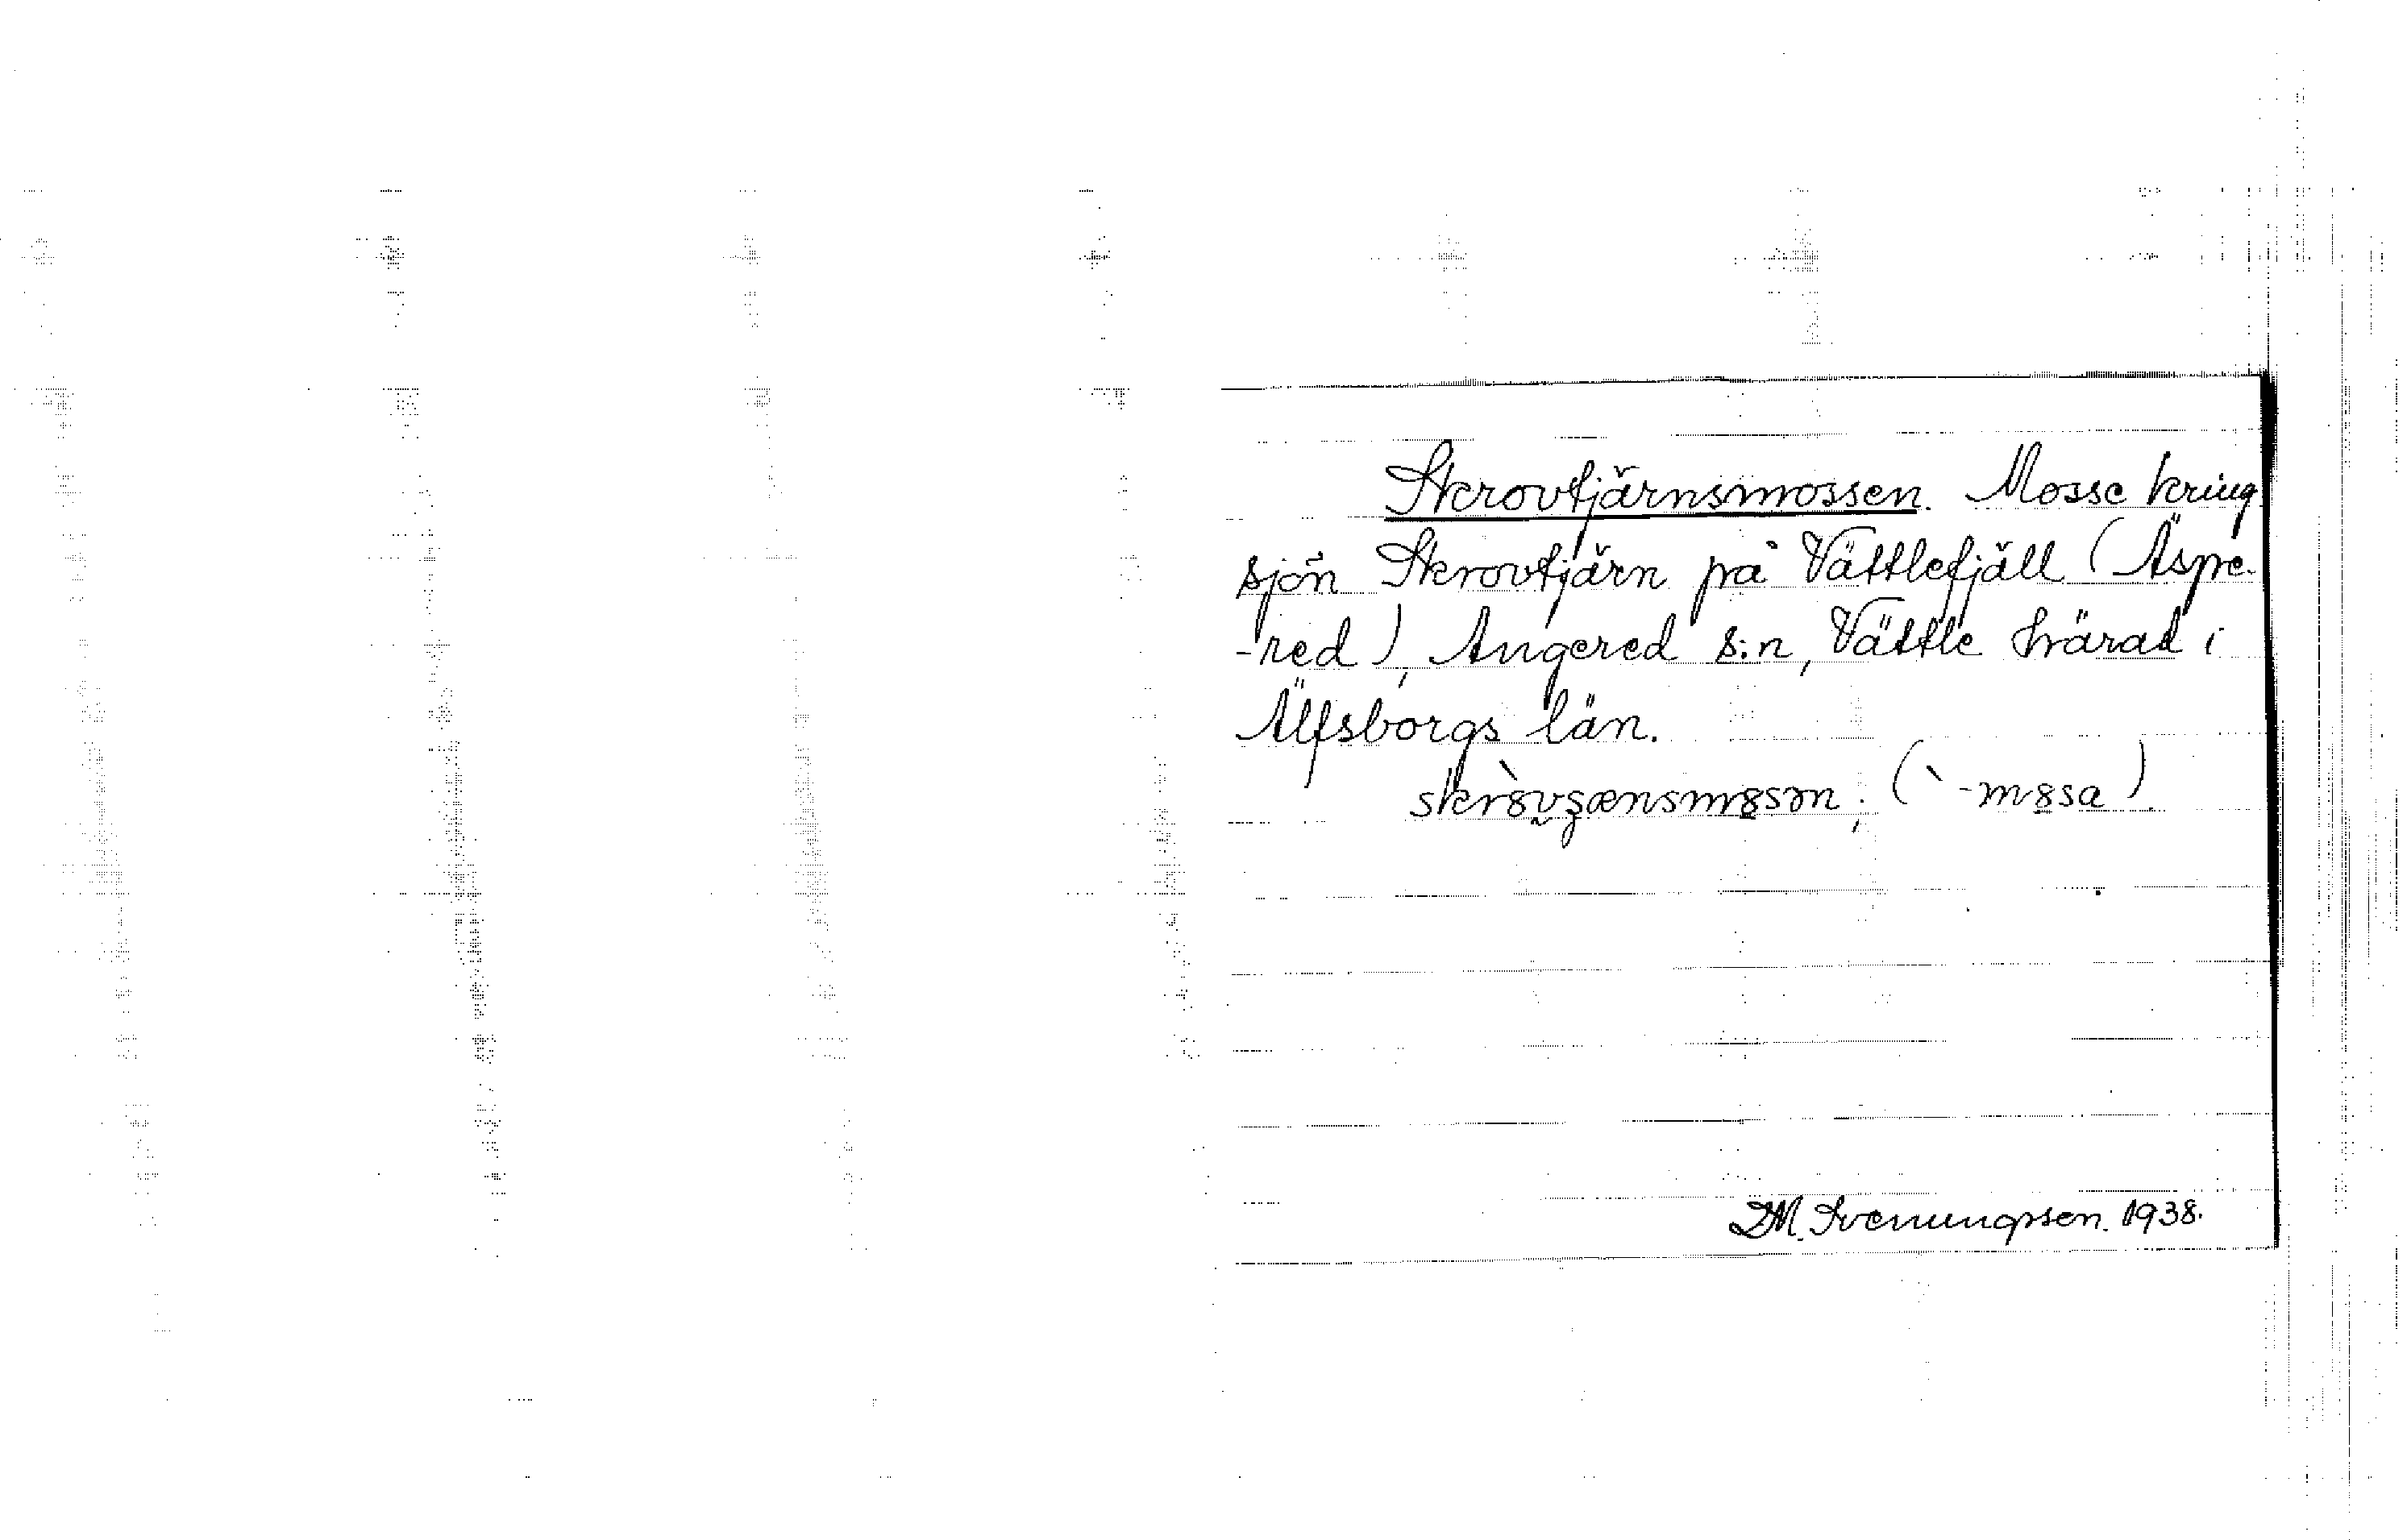 Skrovtjärnsmossen. Mosse kring
sjön Skrovtjärn på Vättlefjäll (Äspe-
-red), Angered s:n, Vättle härad i
Älfsborgs län.
(`-m8sa).
D.M. Svenungsson. 1938.